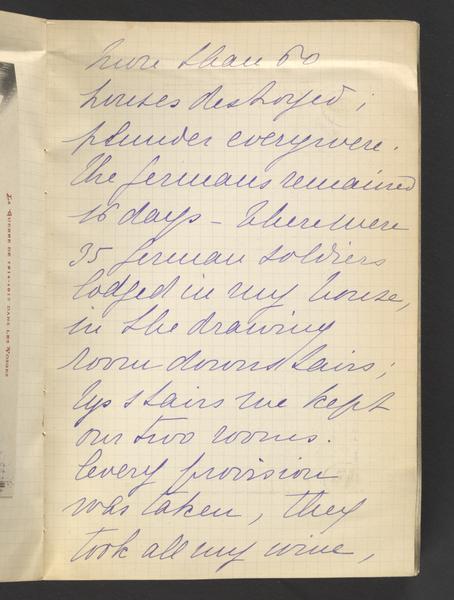 more than 60
houses destroyed ;
plunder everywere.
The germans remained
16 days – There were
35 german soldiers
lodged in my house,
in the drawing
room downstairs ;
Upstairs we kept
our two rooms.
Every provision
was taken, they
took all my wine,
LA GUERRE DE 1914-1915 DANS LES VOSGES